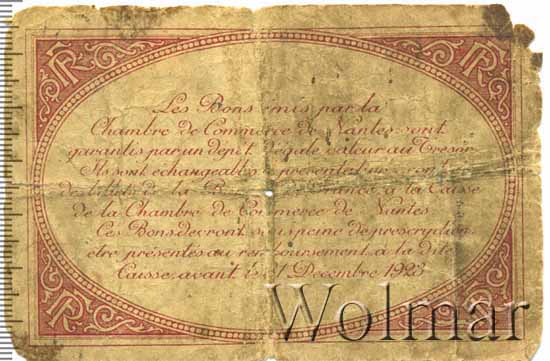 RF
RF
Les Bons émis par la
Chambre de Commerce de Nantes sont
garantis par un dépôt d'égale valeur au Trésor
Ils sont échangeables à présentation cont
des billets de la Banque de France à la Caisse
de la Chambre de Commerce de Nantes
Ces Bons devront sous peine de prescription
etre présentés au remboursement à la dite
Caisse avant le 31 Décembre 1923
RF
RF
Wolmar